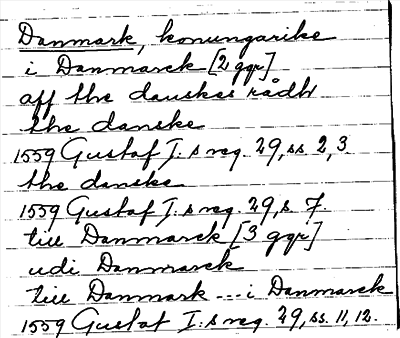 Danmark, konungarike
i Danmarck [2 ggr]
aff the danskes rådh
the danske
1559 Gustaf I:s reg. 29, ss. 2, 3.
the danske
1559 Gustaf I:s reg. 29, s. 7.
till Danmarck [3 ggr]
udi Danmarck
till Danmark --- i Danmarck
1559 Gustaf I:s reg. 29, ss. 11, 12.